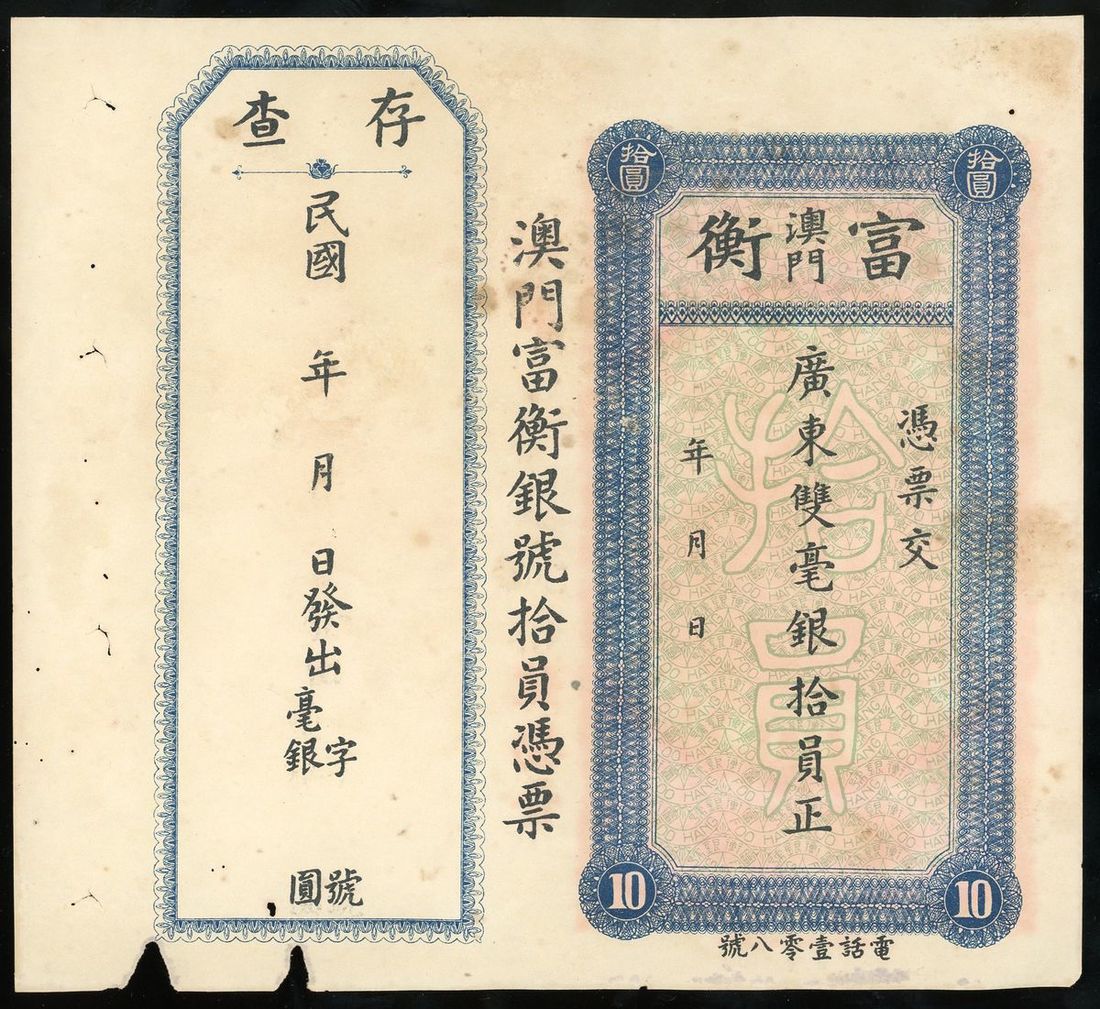 拾圓
拾圓
富澳門衡
憑票交
廣東雙毫銀拾員正
年月日
拾員
10
10
電話壹零八號
澳門富衡銀號拾員憑票
存查
民國年月日發出
字號
毫銀圓